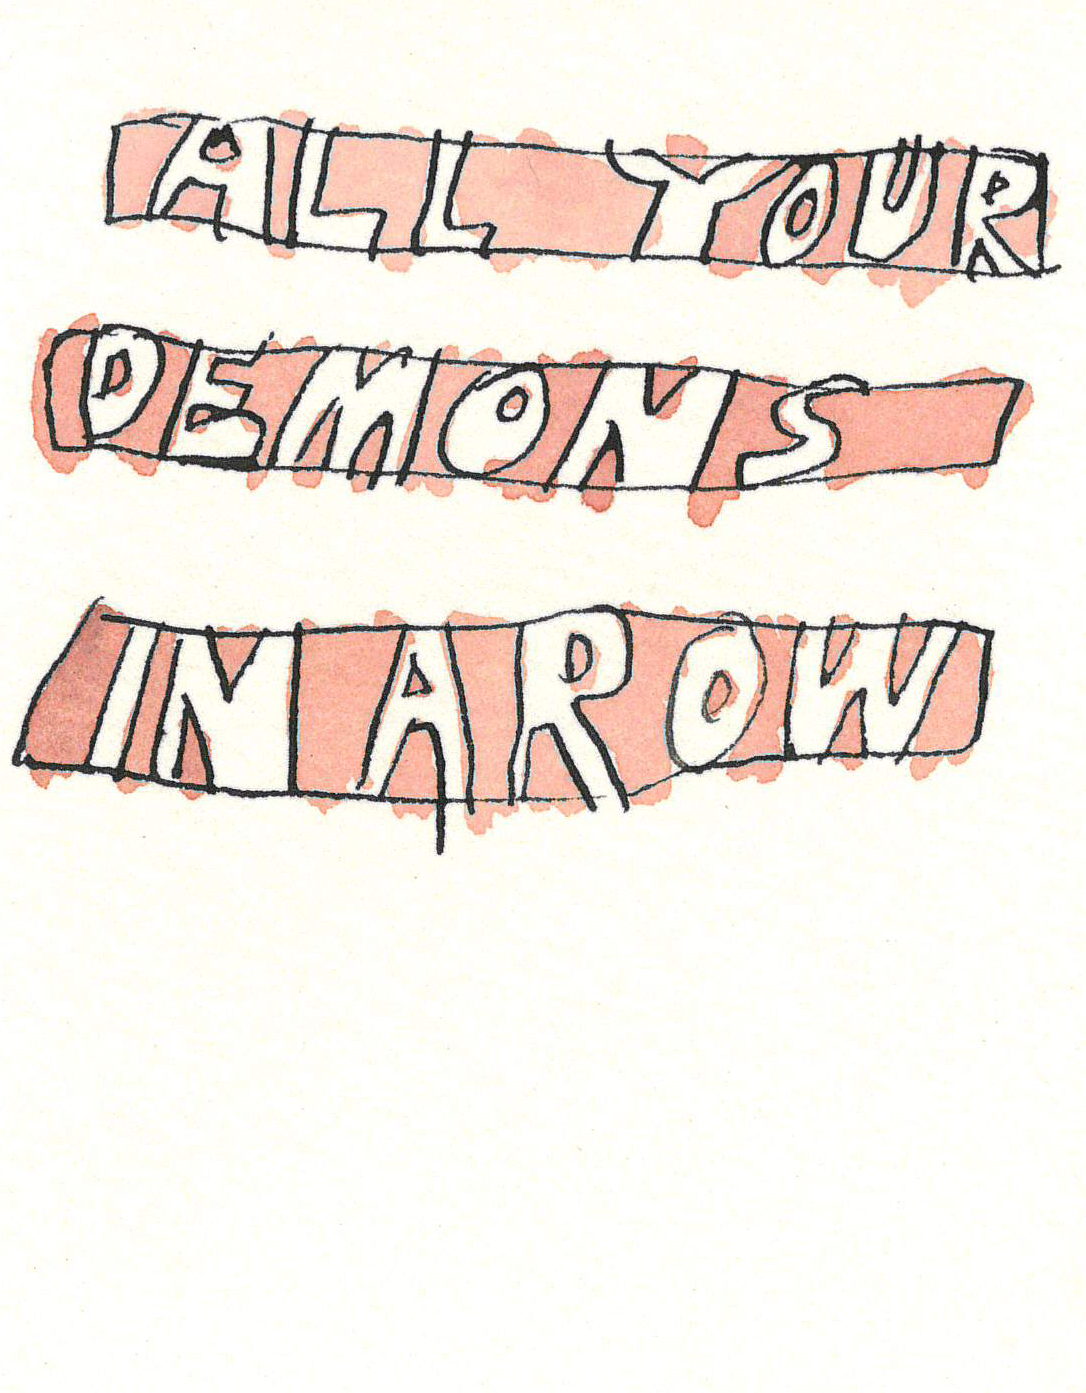 ALL YOUR
DEMONS
IN A ROW